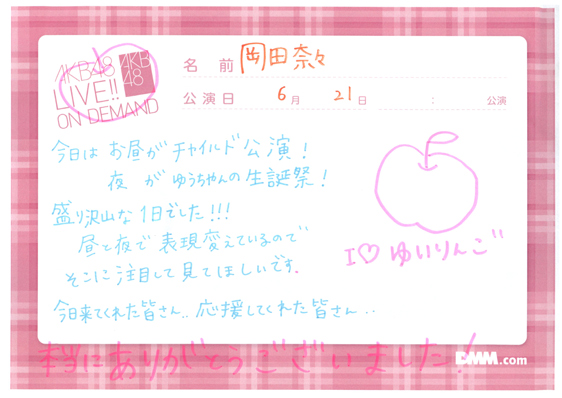 AKB48
LIVE!!
ON DEMAND
AKB
48
名前 岡田奈々
公演日 6月 21日 : 公演
今日は お昼がチャイルド公演!
夜 が ゆうちゃんの生誕祭!
盛り沢山な1日でした!!!
昼と夜で 表現変えているので
そこに注目して見てほしいです.
I♡ゆいりんご
今日来てくれた皆さん.. 応援してくれた皆さん..
本当にありがとうございました!
DMM.com